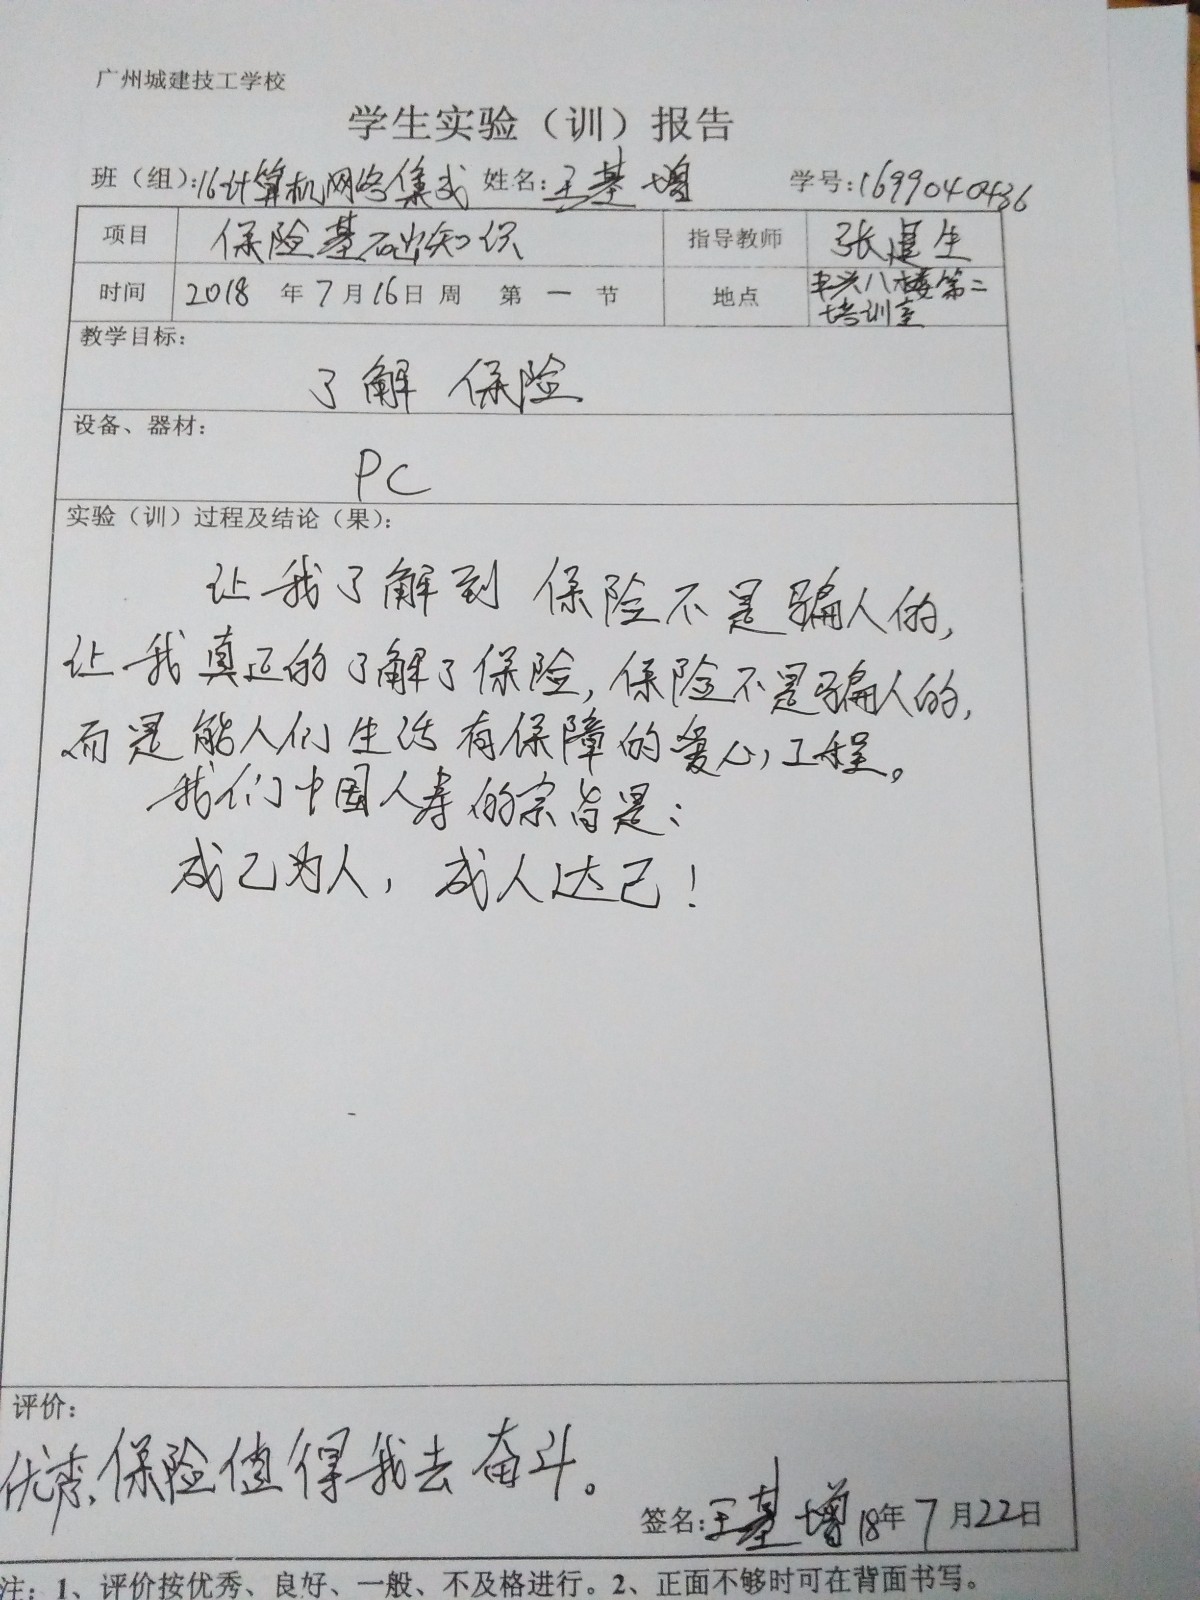 广州城建技工学校
学生实验（训）报告
班（组）：16计算机网络集成 姓名：王基增 学号：1699040436
项目 保险基础知识 指导教师 张建生
时间 2018 年 7 月 16 日 周 第 一 节 地点 丰兴八楼第二
培训室
教学目标：
了解 保险
设备、器材：
PC
实验（训）过程及结论（果）：
让我了解到 保险不是骗人的,
让我真正的了解了保险, 保险不是骗人的,
而是能人们生活有保障的爱心工程。
我们中国人寿的宗旨是：
成己为人，成人达己！
评价：
优秀, 保险值得我去奋斗。
签名：王基增 18年 7 月 22 日
注：1、评价按优秀、良好、一般、不及格进行。2、正面不够时可在背面书写。